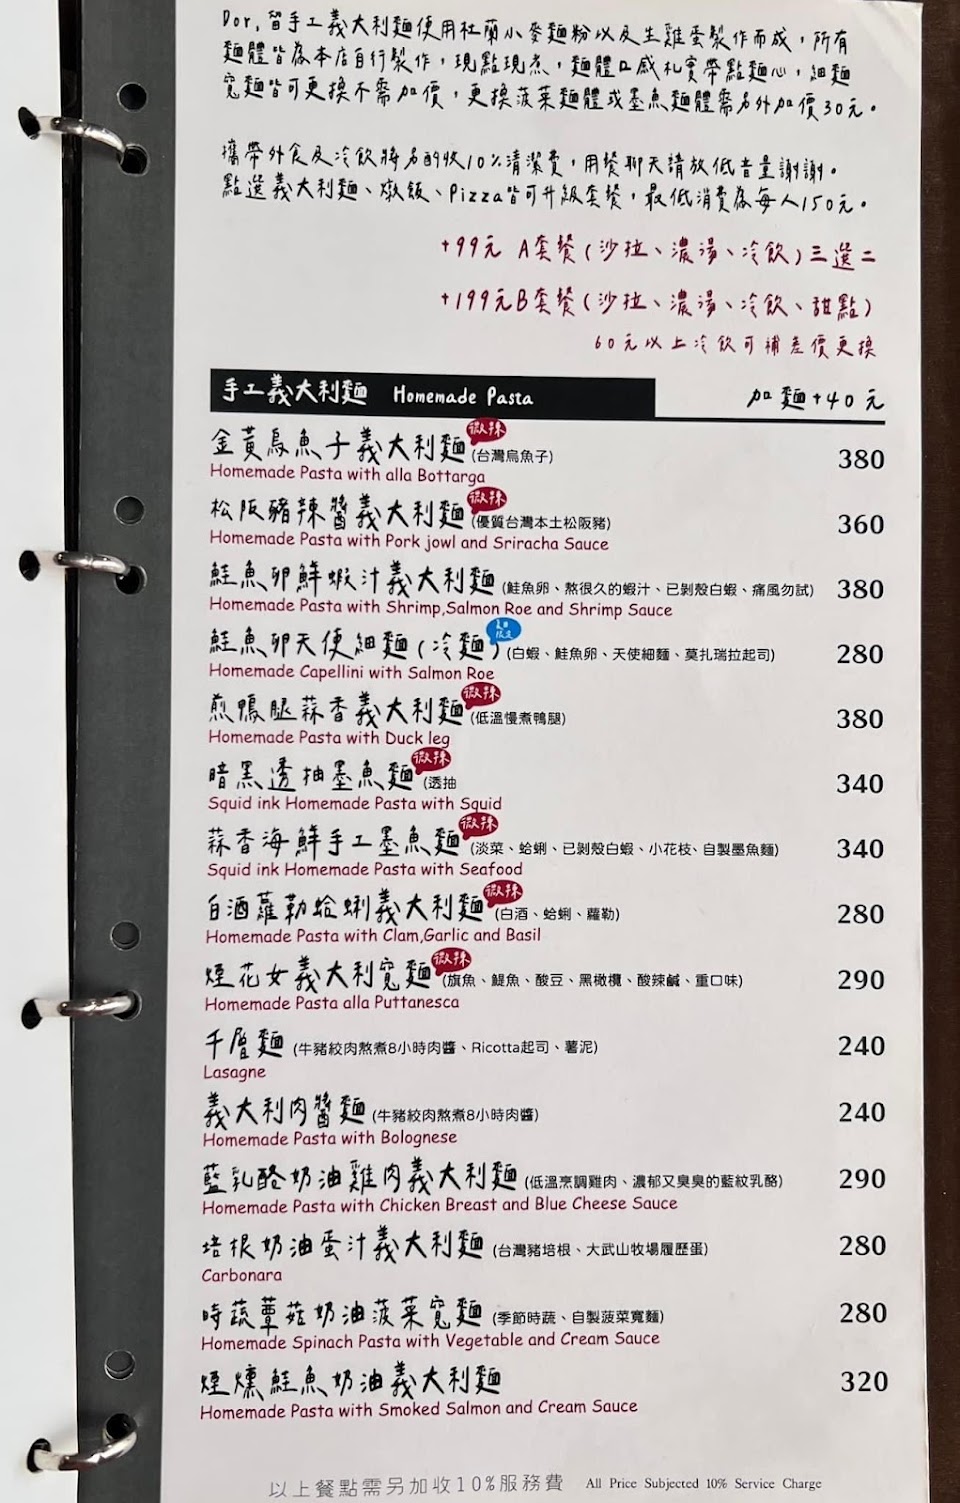 Dor, 留手工義大利麵使用杜蘭小麥麵粉以及生雞蛋製作而成，所有
麵體皆為本店自行製作，現點現煮，麵體口感札實帶點麵心，細麵
寬麵皆可更換不需加價，更換菠菜麵體或墨魚麵體需另外加價30元。
攜帶外食及冷飲將另酌收10%清潔費，用餐聊天請放低音量謝謝。
點選義大利麵、燉飯、Pizza皆可升級套餐，最低消費為每人150元。
+99元 A套餐(沙拉、濃湯、冷飲)三選二
+199元B套餐(沙拉、濃湯、冷飲、甜點)
60元以上冷飲可補差價更換
手工義大利麵 Homemade Pasta 加麵+40元
金黃烏魚子義大利麵 微辣 (台灣烏魚子) 380
Homemade Pasta with alla Bottarga
松阪豬辣醬義大利麵 微辣 (優質台灣本土松阪豬) 360
Homemade Pasta with Pork jowl and Sriracha Sauce
鮭魚卵鮮蝦汁義大利麵 (鮭魚卵、熬很久的蝦汁、已剝殼白蝦、痛風勿試) 380
Homemade Pasta with Shrimp,Salmon Roe and Shrimp Sauce
鮭魚卵天使細麵(冷麵) 夏日限定 (白蝦、鮭魚卵、天使細麵、莫扎瑞拉起司) 280
Homemade Capellini with Salmon Roe
煎鴨腿蒜香義大利麵 微辣 (低溫慢煮鴨腿) 380
Homemade Pasta with Duck leg
暗黑透抽墨魚麵 微辣 (透抽 340
Squid ink Homemade Pasta with Squid
蒜香海鮮手工墨魚麵 微辣 (淡菜、蛤蜊、已剝殼白蝦、小花枝、自製墨魚麵) 340
Squid ink Homemade Pasta with Seafood
白酒蘿勒蛤蜊義大利麵 微辣 (白酒、蛤蜊、蘿勒) 280
Homemade Pasta with Clam,Garlic and Basil
煙花女義大利寬麵 微辣 (旗魚、鯷魚、酸豆、黑橄欖、酸辣鹹、重口味) 290
Homemade Pasta alla Puttanesca
千層麵 (牛豬絞肉熬煮8小時肉醬、Ricotta起司、薯泥) 240
Lasagne
義大利肉醬麵 (牛豬絞肉熬煮8小時肉醬) 240
Homemade Pasta with Bolognese
藍乳酪奶油雞肉義大利麵 (低溫烹調雞肉、濃郁又臭臭的藍紋乳酪) 290
Homemade Pasta with Chicken Breast and Blue Cheese Sauce
培根奶油蛋汁義大利麵 (台灣豬培根、大武山牧場履歷蛋) 280
Carbonara
時蔬蕈菇奶油菠菜寬麵 (季節時蔬、自製菠菜寬麵) 280
Homemade Spinach Pasta with Vegetable and Cream Sauce
煙燻鮭魚奶油義大利麵 320
Homemade Pasta with Smoked Salmon and Cream Sauce
以上餐點需另加收10%服務費 All Price Subjected 10% Service Charge